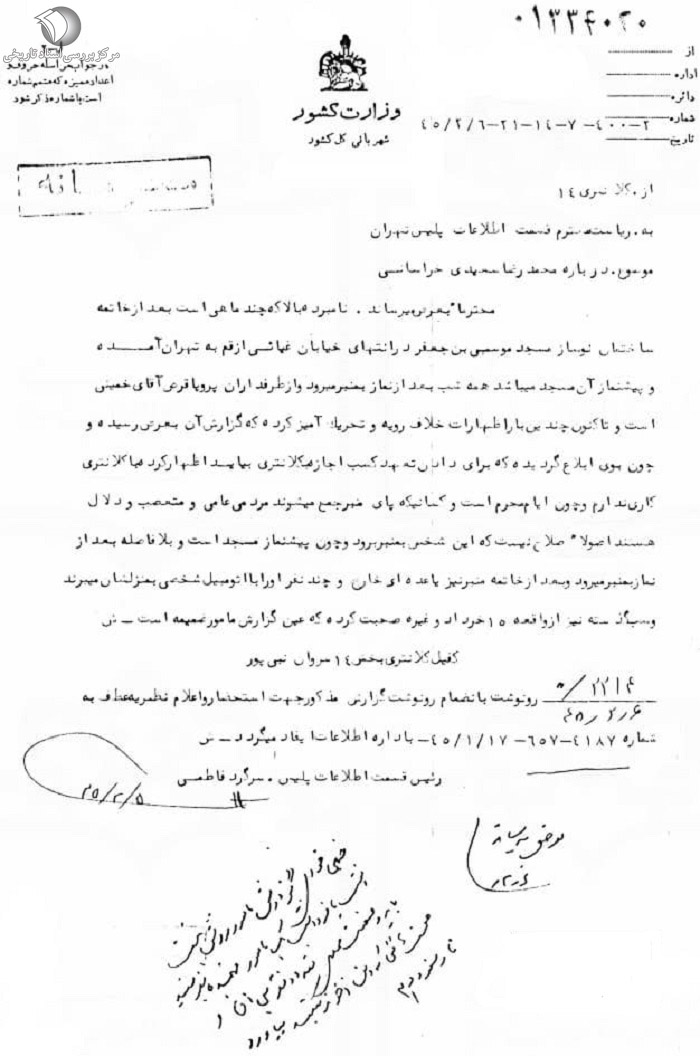 ۰۱۳۳۴۰۲۰
مرکز بررسی اسناد تاریخی
در جواب مراسله حروف و
اعداد ممیزه که منضم شماره
است باشماره ذکر شود
وزارت کشور
شهربانی کل کشور
از
اداره
دائره
شماره ۲-۴۰۰-۷-۱۴-۲۱-۴۵/۲/۶
تاریخ
از. کلانتری ۱۴
به. ریاست محترم قسمت اطلاعات پلیس تهران
موضوع. درباره محمد رضا سعیدی خراسانی
محترما" بعرض میرساند. نامبرده بالا که چند ماهی است بعد از خاتمه
ساختمان نوساز مسجد موسی بن جعفر در انتهای خیابان غیاثی از قم به تهران آمده
و پیشنماز آن مسجد میباشد همه شب بعد از نماز بمنبر میرود و از طرفداران پروپاقرص آقای خمینی
است و تاکنون چندین بار اظهارات خلاف رویه و تحریک آمیز کرده که گزارش آن بعرض رسیده و
چون بوی ابلاغ گردیده که برای دادن تعهد کسب اجازه بکلانتری بیاید اظهار کرده با کلانتری
کاری ندارم و چون ایام محرم است و کسانیکه پای منبر جمع میشوند مردمی عامی و متعصب و دلال
هستند اصولا" صلاح نیست که این شخص بمنبر برود و چون پیشنماز مسجد است و بلافاصله بعد از
نماز بمنبر میرود و بعد از خاتمه منبر نیز با عده ای خارج و چند نفر او را با اتومبیل شخصی بمنزلشان میبرند
و شب گذشته نیز از واقعه ۱۵ خرداد و غیره صحبت کرده که عین گزارش مامور ضمیمه است - ش
کفیل کلانتری بخش ۱۴ سروان نبی پور
رونوشت بانضمام رونوشت گزارش مذکور جهت استحضار و اعلام نظریه عطف به
شماره ۴۱۸۷-۶۵۷-۴۵/۱/۱۷ باداره اطلاعات ایفاد میگردد - ش
رئیس قسمت اطلاعات پلیس. سرگرد فاطمی
۴۵/۲/۵